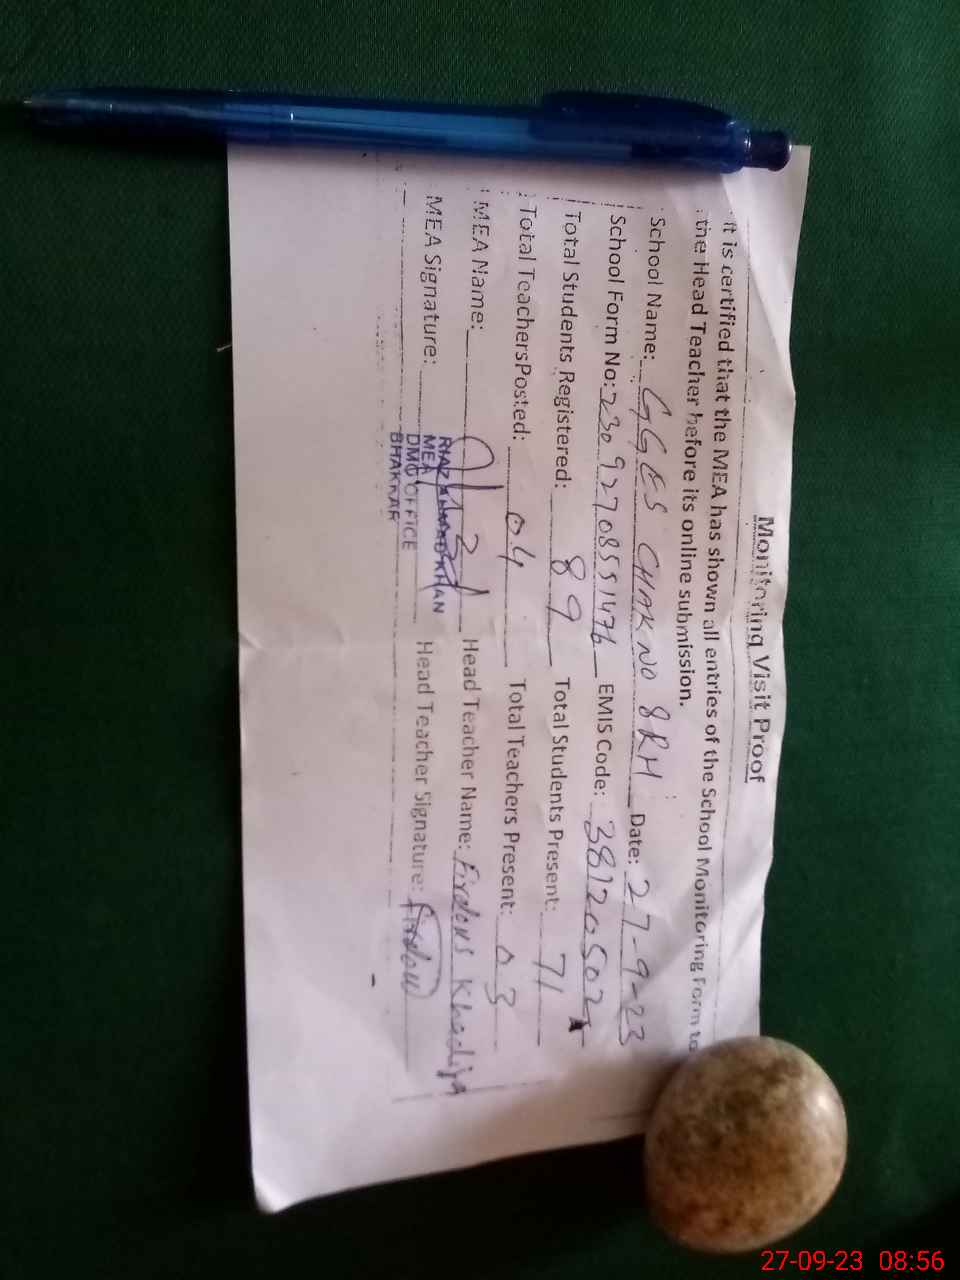 Monitoring Visit Proof
It is certified that the MEA has shown all entries of the School Monitoring Form to
the Head Teacher before its online submission.
School Name: GGES CHAK NO 8RH Date: 27-9-23
School Form No: 23092708551476 EMIS Code: 38120502
Total Students Registered: 89 Total Students Present: 71
Total Teachers Posted: 04 Total Teachers Present: 03
MEA Name: Head Teacher Name: Firdous Khadija
MEA Signature: Head Teacher Signature: Firdous
RIAZ AHMAD KHAN
MEA
DMO OFFICE
BHAKKAR
27-09-23 08:56